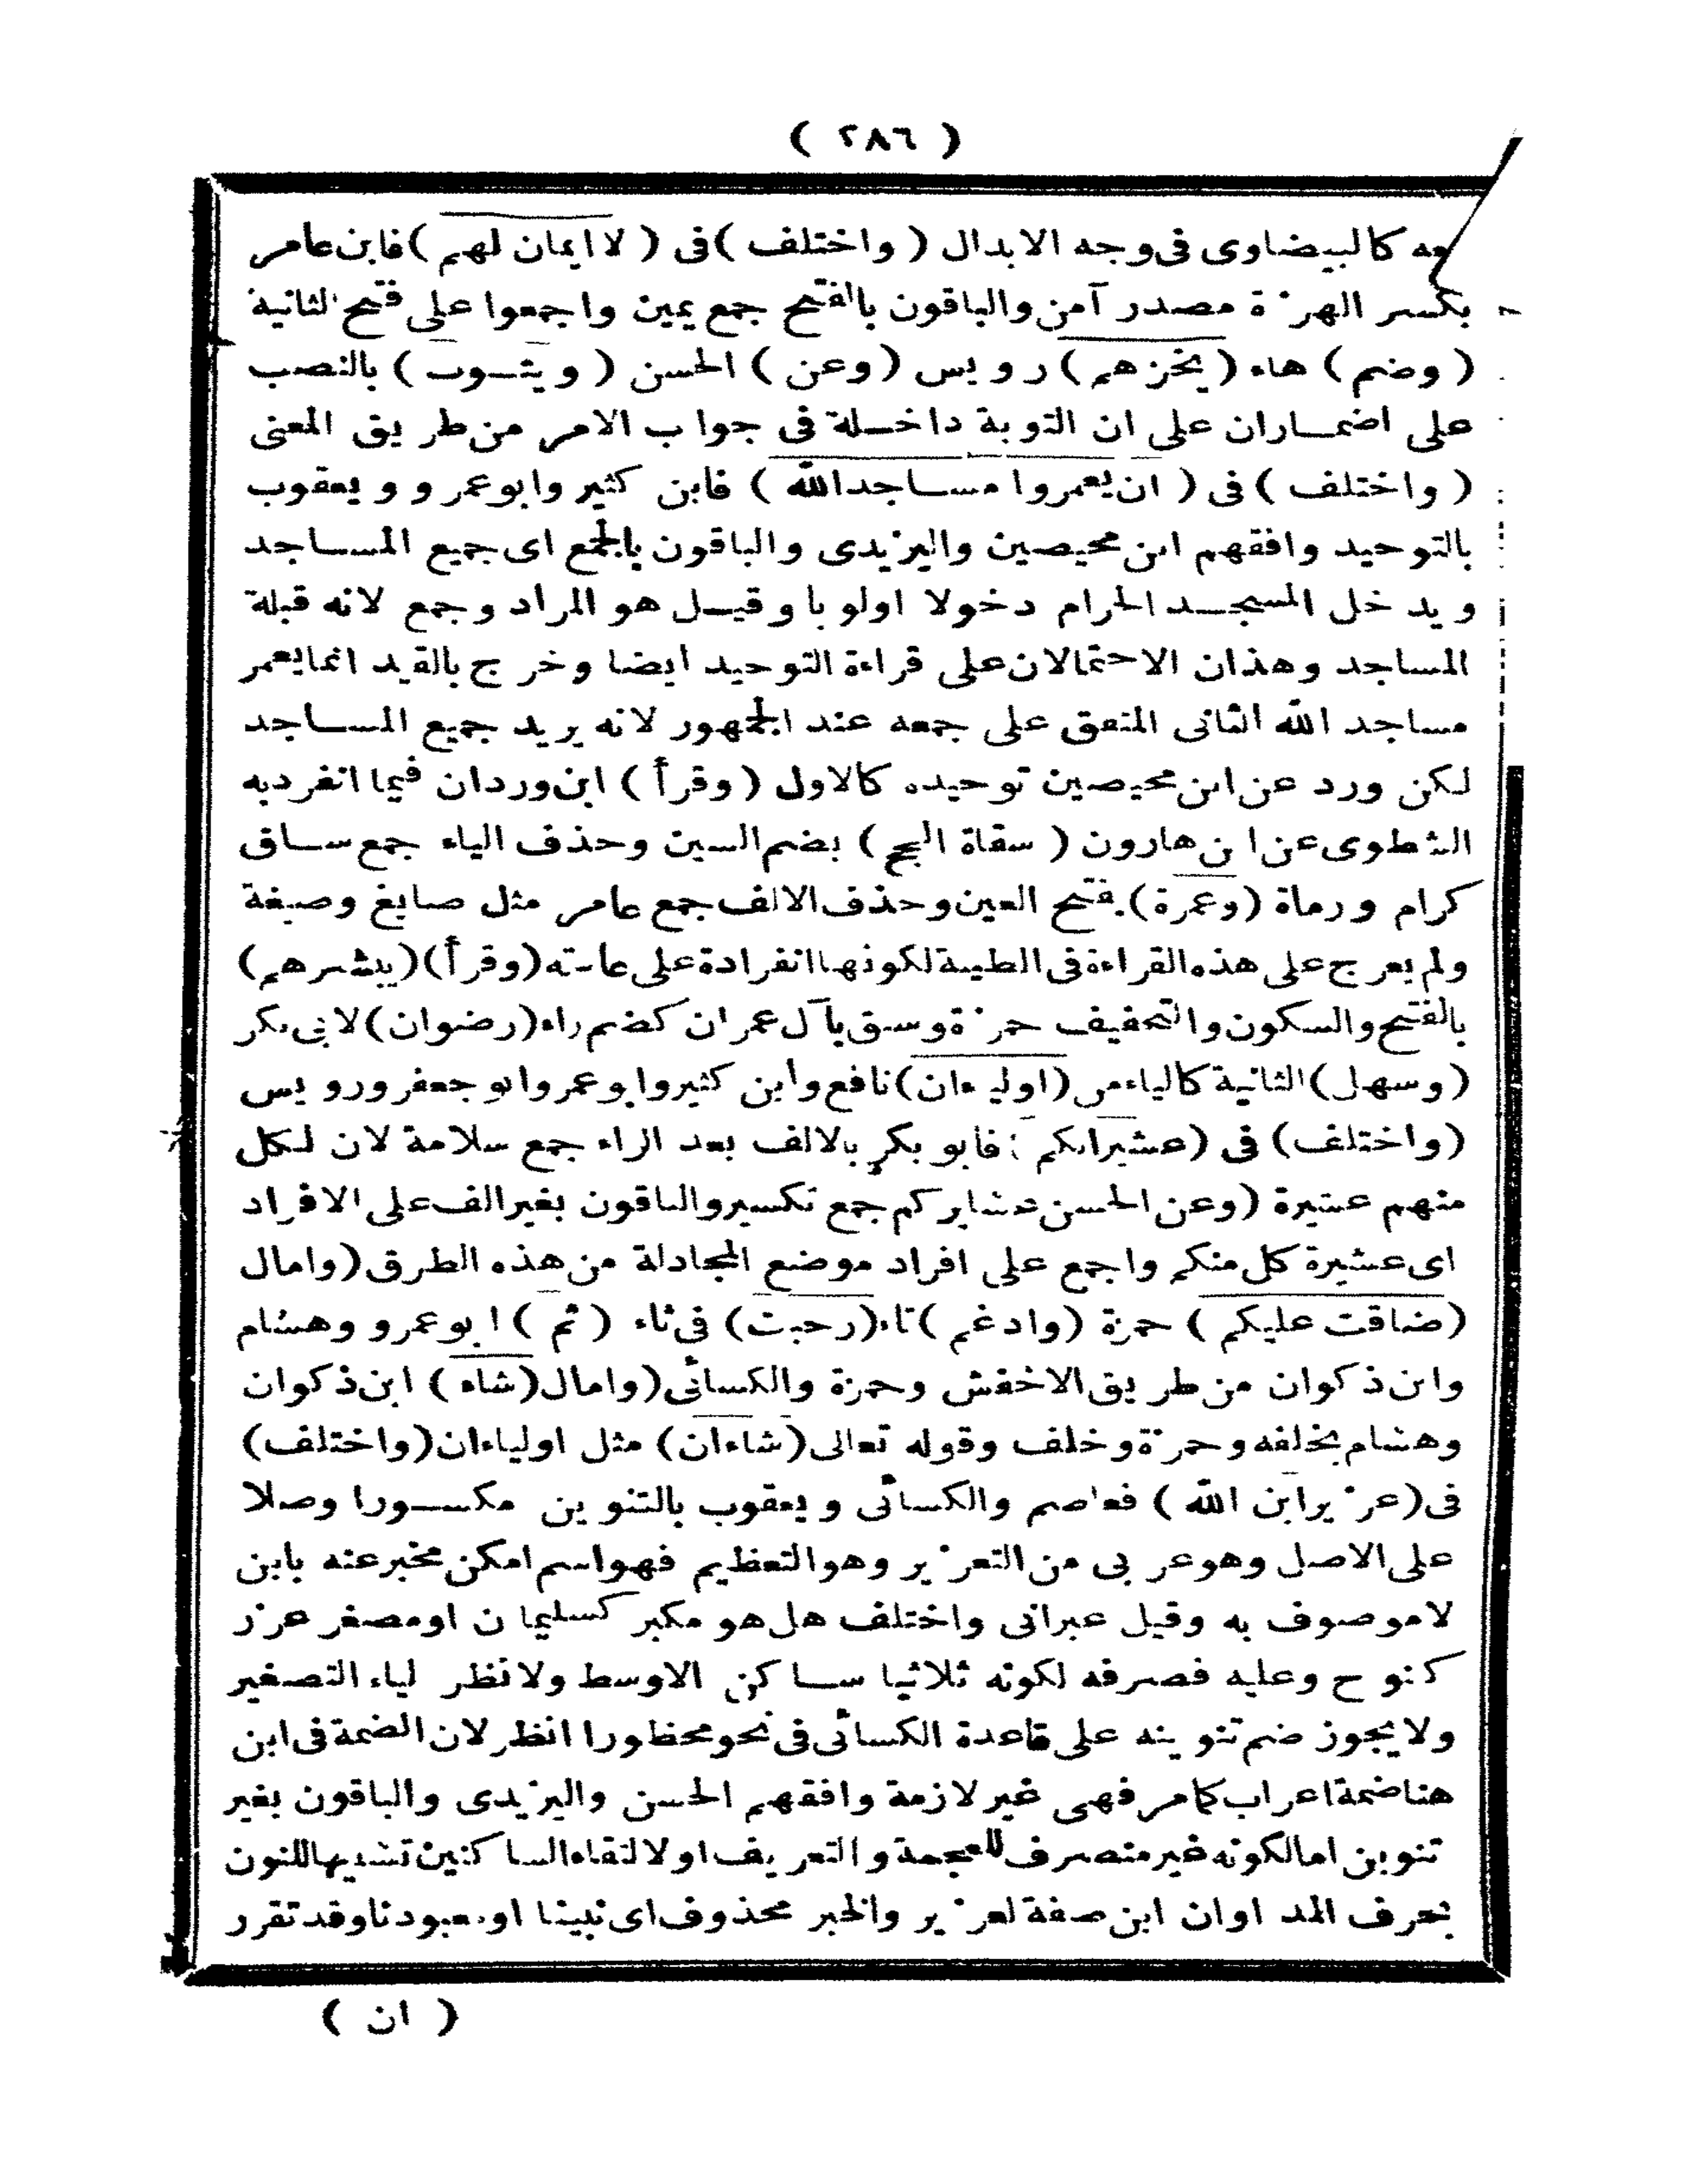 ( ٢٨٦ )
معه كالبيضاوى فى وجه الابدال ( واختلف ) فى ( لا ايمان لهم ) فابن عامر
بكسر الهمزة مصدر آمن والباقون بالفتح جمع يمين واجمعوا على فتح الثانية
( وضم ) هاء ( يخزهم ) رويس ( وعن ) الحسن ( ويتـوب ) بالنصب
على اضمـاران على ان التوبة داخـلة فى جواب الامر من طريق المعنى
( واختلف ) فى ( ان يعمروا مسـاجد الله ) فابن كثير وابو عمرو ويعقوب
بالتوحيد وافقهم ابن محيصين واليزيدى والباقون بالجمع اى جميع المسـاجد
ويدخل المسجـد الحرام دخولا اولويا وقيـل هو المراد وجمع لانه قبلة
المساجد وهذان الاحتمالان على قراءة التوحيد ايضا وخرج بالقيد انما يعمر
مساجد الله الثانى المتفق على جمعه عند الجمهور لانه يريد جميع المسـاجد
لكن ورد عن ابن محيصين توحيده كالاول ( وقرأ ) ابن وردان فيما انفرد به
الشطوى عن ابن هارون ( سقاة الحج ) بضم السين وحذف الياء جمع سـاق
كرام ورماة ( وعمرة ) بفتح العين وحذف الالف جمع عامر مثل صايغ وصيغة
ولم يعرج على هذه القراءة فى الطيبة لكونها انفرادة على عادته ( وقرأ ) ( يبشرهم )
بالفتح والسكون والتخفيف حمزة وسبق بآل عمران كضم راء ( رضوان ) لابى بكر
( وسهل ) الثانية كالياء من ( اولياء ان ) نافع وابن كثير وابو عمرو وابو جعفر ورويس
( واختلف ) فى ( عشيراتكم ) فابو بكر بالالف بعد الراء جمع سلامة لان لكل
منهم عشيرة ( وعن الحسن عشايركم جمع تكسير والباقون بغير الف على الافراد
اى عشيرة كل منكم واجمع على افراد موضع المجادلة من هذه الطرق ( وامال
( ضاقت عليكم ) حمزة ( وادغم ) تاء ( رحبت ) فى ثاء ( ثم ) ابو عمرو وهشام
وابن ذكوان من طريق الاخفش وحمزة والكسائى ( وامال ( شاء ) ابن ذكوان
وهشام بخلفه وحمزة وخلف وقوله تعالى ( شاء ان ) مثل اولياء ان ( واختلف )
فى ( عزير ابن الله ) فعاصم والكسائى ويعقوب بالتنوين مكسـورا وصلا
على الاصل وهو عربى من التعزير وهو التعظيم فهو اسم امكن مخبر عنه بابن
لا موصوف به وقيل عبرانى واختلف هل هو مكبر كسليمان او مصغر عزر
كنوح وعليه فصرفه لكونه ثلاثيا سـاكن الاوسط ولا نظر لياء التصغير
ولا يجوز ضم تنوينه على قاعدة الكسائى فى نحو محظورا انظر لان الضمة فى ابن
هنا ضمة اعراب كما مر فهى غير لازمة وافقهم الحسن واليزيدى والباقون بغير
تنوين اما لكونه غير منصرف للعجمة والتعريف او لالتقاء الساكنين تشبيها للنون
بحرف المد او ان ابن صفة لعزير والخبر محذوف اى نبينا او معبودنا وقد تقرر
( ان )